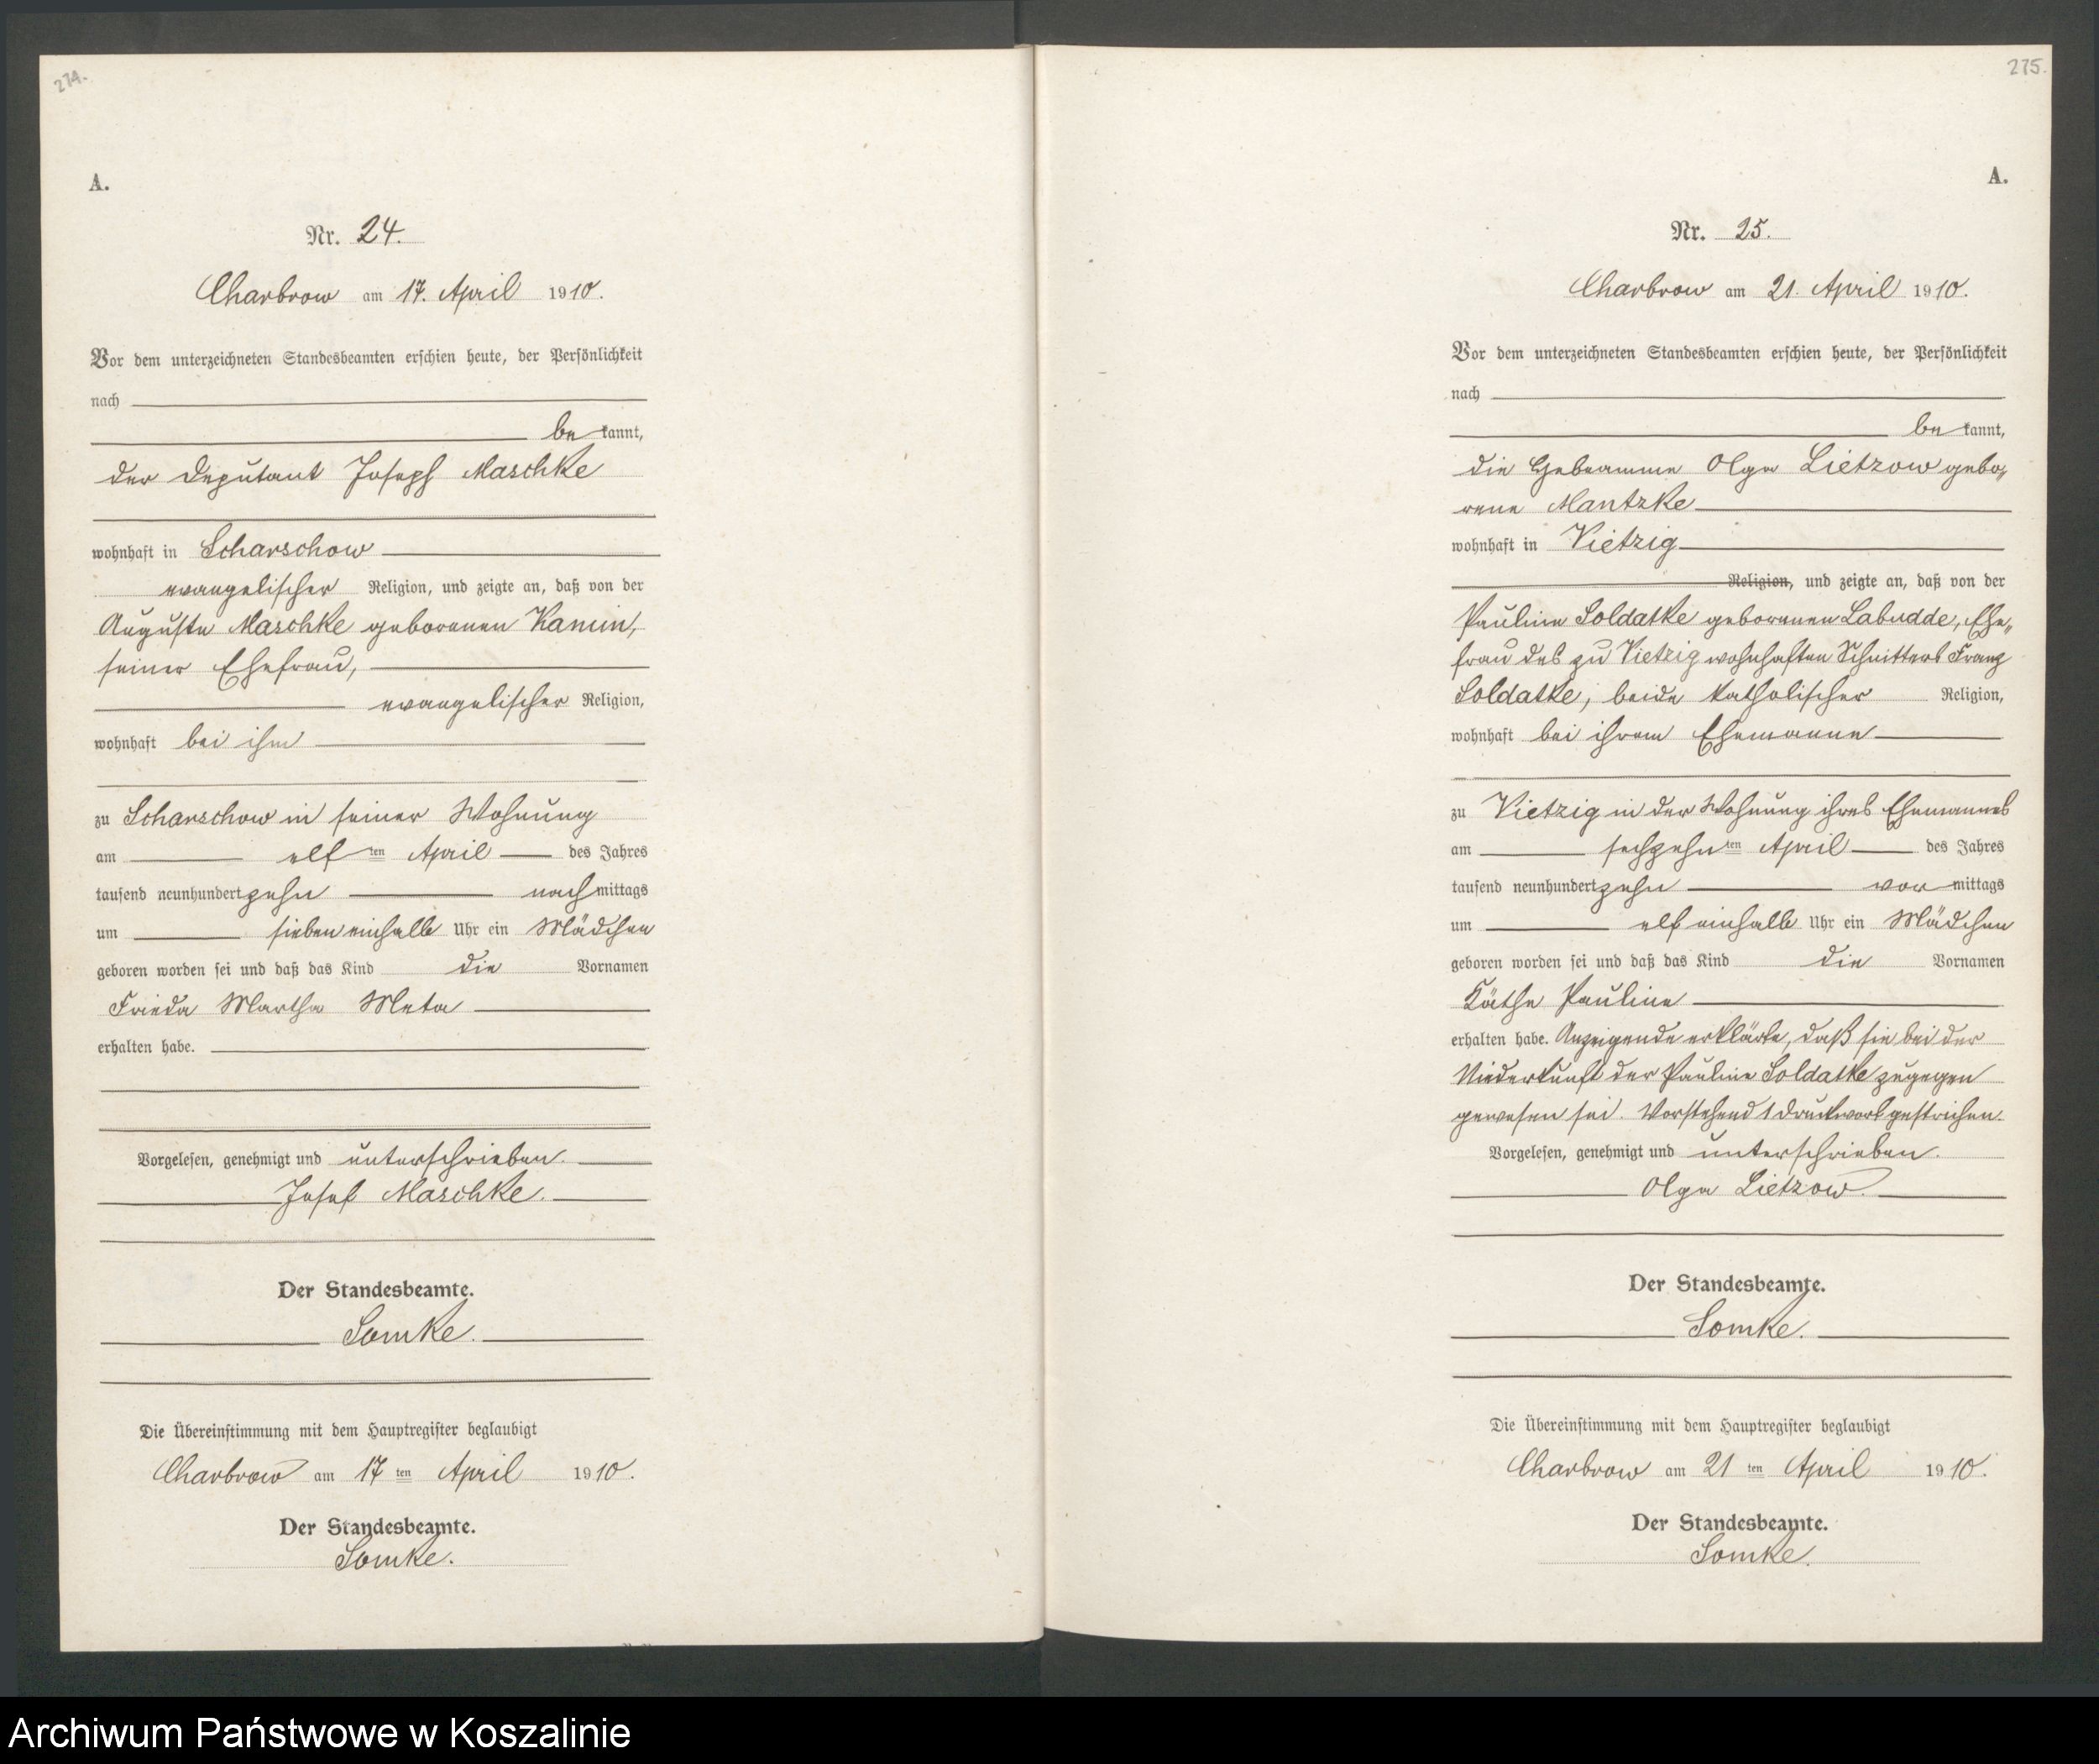 274.
A.
Nr. 24.
Charbrow am 17. April 1910.
Vor dem unterzeichneten Standesbeamten erschien heute, der Persönlichkeit
nach
be kannt,
der Deputant Joseph Maschke
wohnhaft in Scharschow
evangelischer Religion, und zeigte an, daß von der
Auguste Maschke geborenen Kamin,
seiner Ehefrau,
evangelischer Religion,
wohnhaft bei ihm
zu Scharschow in seiner Wohnung
am elf ten April des Jahres
tausend neunhundert zehn nach mittags
um sieben einhalb Uhr ein Mädchen
geboren worden sei und daß das Kind die Vornamen
Frieda Martha Meta
erhalten habe.
Vorgelesen, genehmigt und unterschrieben.
Josef Maschke.
Der Standesbeamte.
Somke.
Die Übereinstimmung mit dem Hauptregister beglaubigt
Charbrow am 17 ten April 1910.
Der Standesbeamte.
Somke.
275.
A.
Nr. 25.
Charbrow am 21. April 1910.
Vor dem unterzeichneten Standesbeamten erschien heute, der Persönlichkeit
nach
be kannt,
die Hebeamme Olga Lietzow gebo„
rene Mantzke
wohnhaft in Vietzig
Religion, und zeigte an, daß von der
Pauline Soldatke geborenen Labudde, Ehe„
frau des zu Vietzig wohnhaften Schnitters Franz
Soldatke, beide katholischer Religion,
wohnhaft bei ihrem Ehemanne
zu Vietzig in der Wohnung ihres Ehemannes
am sechzehn ten April des Jahres
tausend neunhundert zehn vor mittags
um elf einhalb Uhr ein Mädchen
geboren worden sei und daß das Kind die Vornamen
Käthe Pauline
erhalten habe. Anzeigende erklärte, daß sie bei der
Niederkunft der Pauline Soldatke zugegen
gewesen sei. Vorstehend 1 Druckwort gestrichen.
Vorgelesen, genehmigt und unterschrieben.
Olga Lietzow.
Der Standesbeamte.
Somke.
Die Übereinstimmung mit dem Hauptregister beglaubigt
Charbrow am 21 ten April 1910.
Der Standesbeamte.
Somke.
Archiwum Państwowe w Koszalinie